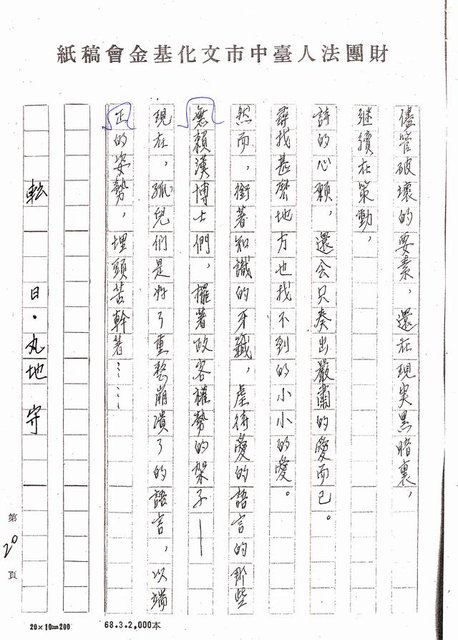 財團法人臺中市文化基金會稿紙
儘管破壞的要素，還在現実黑暗裏，
继續在策動，
詩的心願，還会只奏出嚴肅的愛而已。
尋找甚麼地方也找不到的小小的愛。
然而，銜著知識的牙籤，虛術愛的語言的那些
無賴漢博士們，擺著政客權勢的架子——
現在，孤兒們是為了重整崩潰了的語言，以端
正的姿勢，埋頭苦幹著……
転
日・丸地 守
第20頁
20×10=200
68.3.2,000本